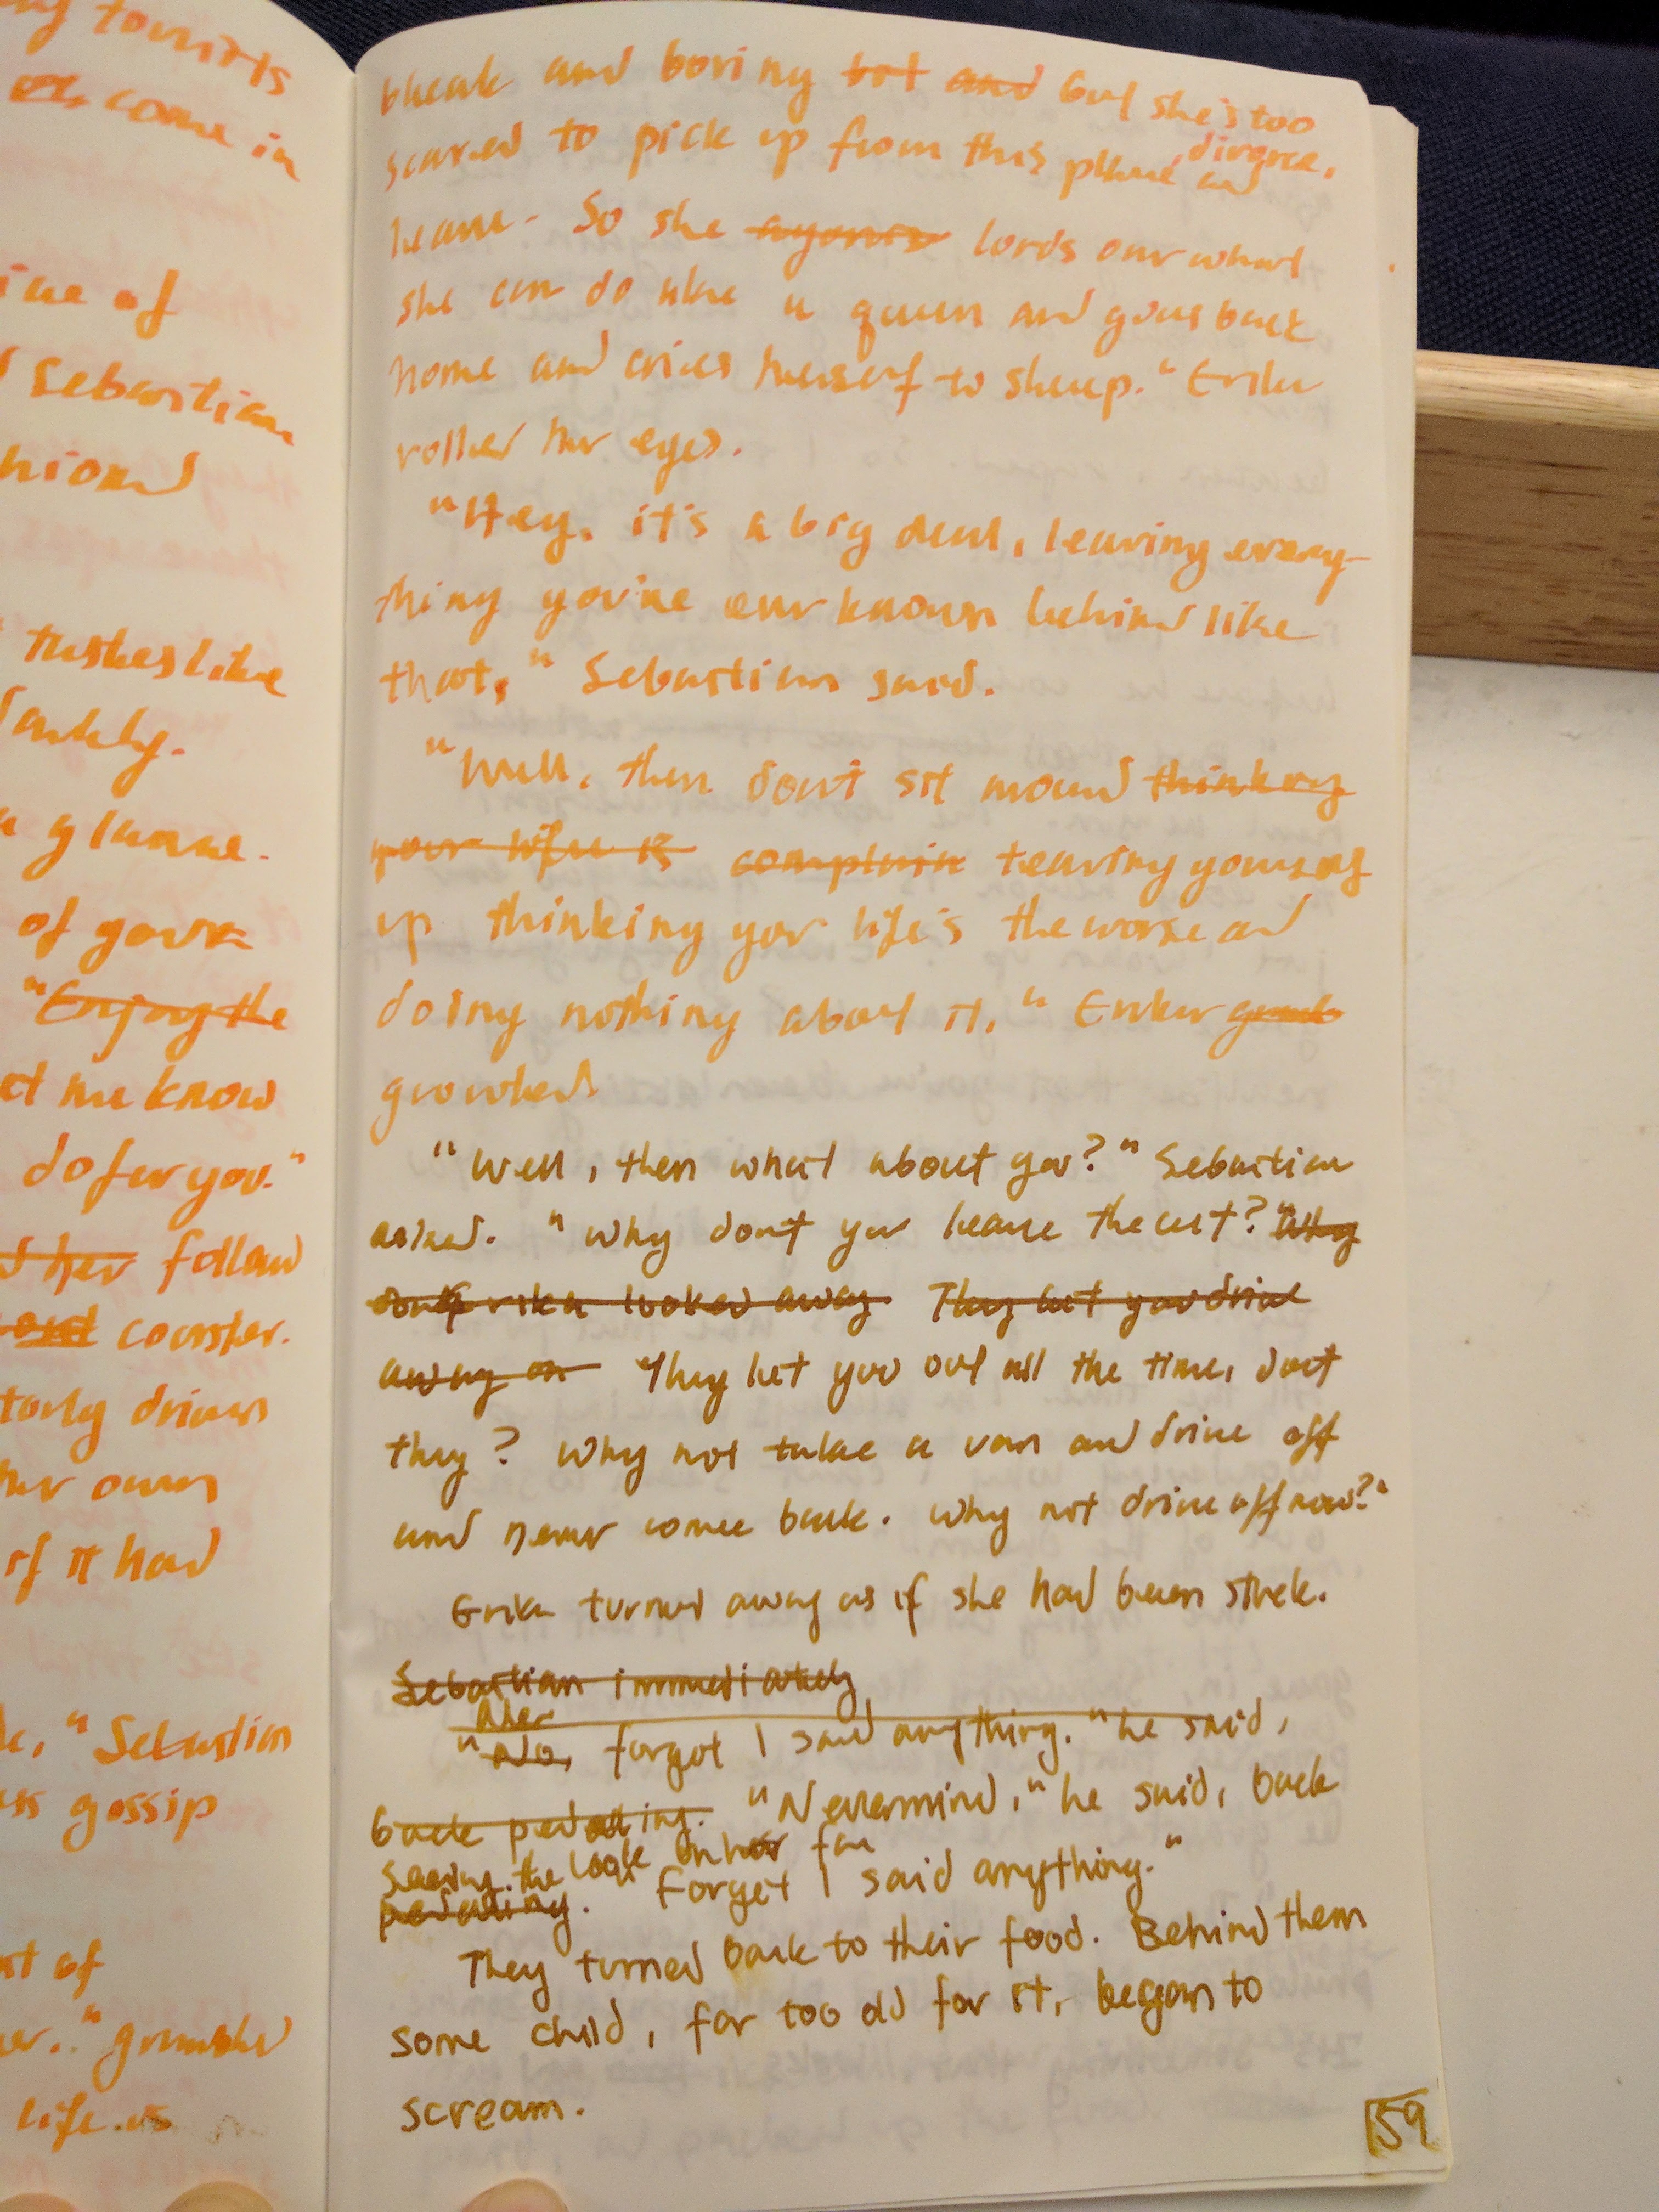 ny tourists
come in
ice of
d Sebastian
hioned
tastes like
Sankly.
a glance.
of gavk
"Enjoy the
et me know
do for you."
d her follow
counter.
torly drives
her own
if it had
le," Sebastian
us gossip
rt of
er.." grumbled
life is
bleak and boring bot and but she's too
scared to pick up from this place, divorce, and
leave. So she agonis lords over what
she can do like a queen and goes back
home and cries herself to sleep." Erika
rolled her eyes.
"Hey, it's a big deal, leaving every-
thing you've ever known behind like
that," Sebastian said.
"Well, then don't sit around thinking
your life is complain tearing yourself
up thinking your life's the worse and
doing nothing about it." Erika grumb
growled
"Well, then what about you?" Sebastian
asked. "Why don't you leave the cult? Why
don't rika looked away They let you drive
away on They let you out all the time, don't
they? Why not take a van and drive off
and never come back. Why not drive off now?"
Erika turned away as if she had been struck.
Sebastian immediately
"No, forget I said anything." he said,
back pedalling. "Nevermind," he said, back
seeing the look on her face
pedalling. "Forget I said anything."
They turned back to their food. Behind them
some child, far too old for it, began to
scream.
159